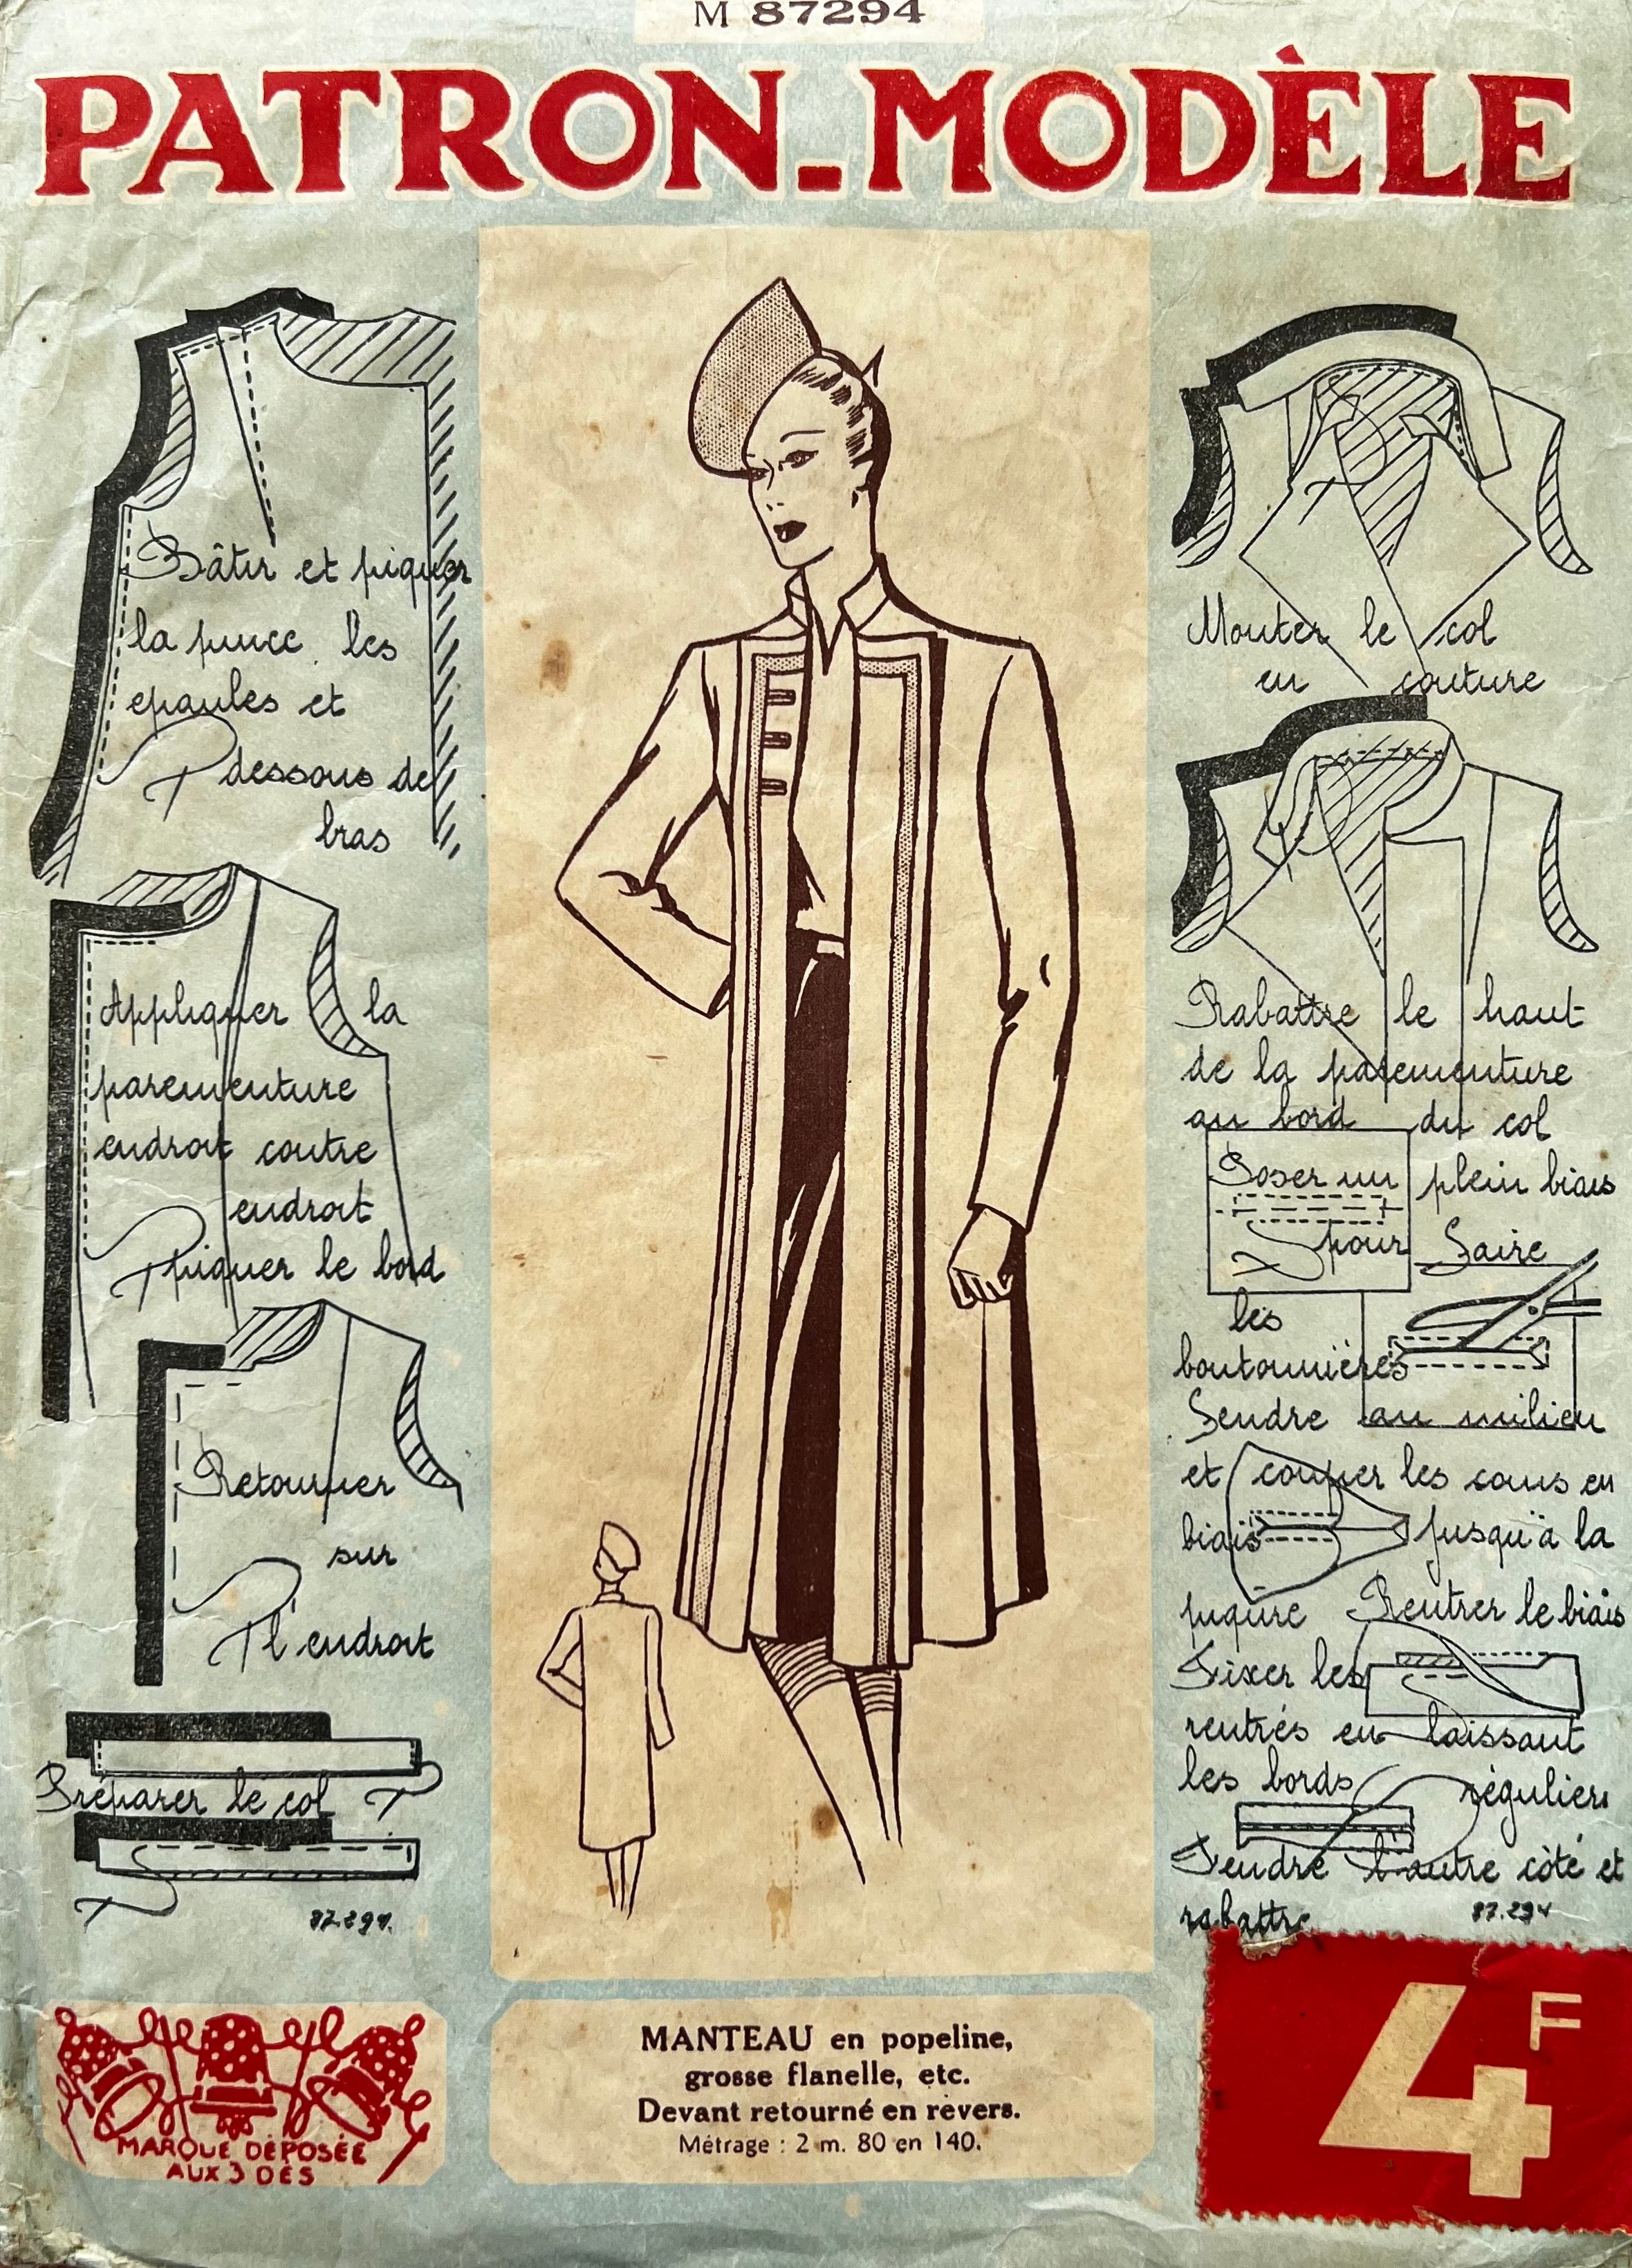 M 87294
PATRON-MODÈLE
Bâtir et piquer
la pince les
epaules et
dessous de
bras
Appliquer la
parementure
endroit contre
endroit
piquer le bord
Retourner
sur
l'endroit
Préparer le col
87.294.
Monter le col
en couture
Rabattre le haut
de la parementure
au bord du col
Poser un plein biais
pour Faire
les
boutonnières
Fendre au milieu
et couper les coins en
biais jusqu'à la
piqure Rentrer le biais
Fixer les
rentrés en laissant
les bords réguliers
Fendre l'autre côté et
rabattre
87.294
MARQUE DÉPOSÉE
AUX 3 DÉS
MANTEAU en popeline,
grosse flanelle, etc.
Devant retourné en revers.
Métrage : 2 m. 80 en 140.
4F